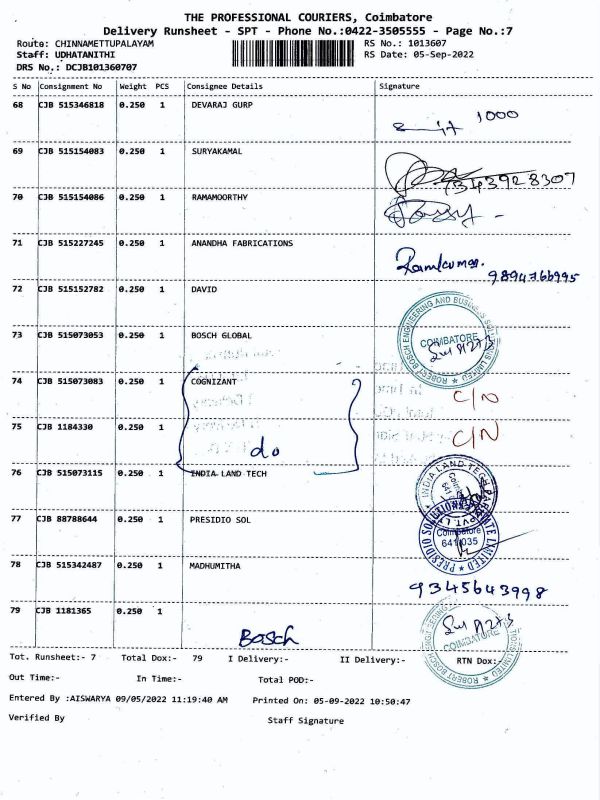 THE PROFESSIONAL COURIERS, Coimbatore
Delivery Runsheet - SPT - Phone No.:0422-3505555 - Page No.:7
Route: CHINNAMETTUPALAYAM RS No.: 1013607
Staff: UDHATANITHI RS Date: 05-Sep-2022
DRS No.: DCJB101360707
S No Consignment No Weight PCS Consignee Details Signature
68 CJB 515346818 0.250 1 DEVARAJ GURP
1000
69 CJB 515154083 0.250 1 SURYAKAMAL
7343928307
70 CJB 515154086 0.250 1 RAMAMOORTHY
71 CJB 515227245 0.250 1 ANANDHA FABRICATIONS
Ramkumar.
9894766995
72 CJB 515152782 0.250 1 DAVID
73 CJB 515073053 0.250 1 BOSCH GLOBAL
ROBERT BOSCH ENGINEERING AND BUSINESS SOLUTIONS LIMITED
COIMBATORE
74 CJB 515073083 0.250 1 COGNIZANT
C/N
75 CJB 1184330 0.250 1
do C/N
76 CJB 515073115 0.250 1 INDIA LAND TECH
INDIA LAND TECH
77 CJB 88788644 0.250 1 PRESIDIO SOL
PRESIDIO SOLUTIONS PRIVATE LIMITED
Coimbatore
641 035
78 CJB 515342487 0.250 1 MADHUMITHA
9345643998
79 CJB 1181365 0.250 1
Bosch
COIMBATORE
Tot. Runsheet:- 7 Total Dox:- 79 I Delivery:- II Delivery:- RTN Dox:-
Out Time:- In Time:- Total POD:-
Entered By :AISWARYA 09/05/2022 11:19:40 AM Printed On: 05-09-2022 10:50:47
Verified By Staff Signature